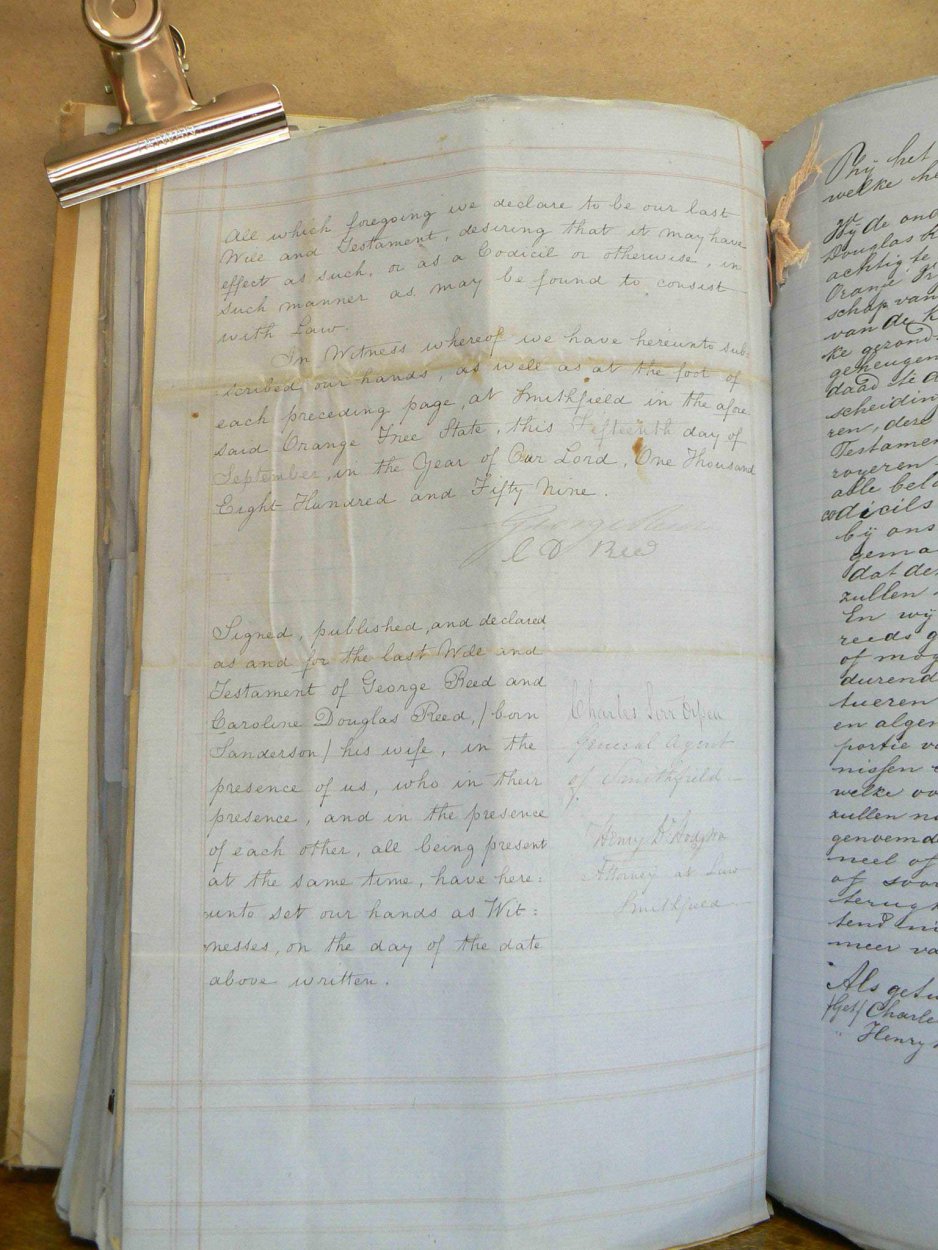 TAIWAN
All which foregoing we declare to be our last
Will and Testament, desiring that it may have
effect as such, or as a Codicil or otherwise, in
such manner as may be found to consist
with Law.
In Witness whereof we have hereunto sub-
scribed our hands, as well as at the foot of
each preceding page, at Smithfield in the afore
said Orange Free State, this Fifteenth day of
September, in the Year of Our Lord, One Thousand
Eight Hundred and Fifty Nine.
George
C D Reed
Signed, published, and declared
as and for the last Will and
Testament of George Reed and
Caroline Douglas Reed, /born
Sanderson/ his wife, in the
presence of us, who in their
presence, and in the presence
of each other, all being present
at the same time, have here:
unto set our hands as Wit:
nesses, on the day of the date
above written.
Charles Orpen
General Agent
of Smithfield
Henry Hodgson
Attorney at Law
Smithfield
Bij het
welke he
Wij de ond
Douglas R
achtig te
Oranje Vr
schap van
van de K
ke gezond
geheugen
daad
scheidin
ren, dese
Testamen
royeren
alle bela
codicils
bij ons
gema
dat de
zullen
En wij
reeds g
of mog
durend
tueren
en algen
portie va
nissen
welke vo
zullen na
genoemd
neel of
of soor
terug
tend ni
meer va
Als getu
/Get/ Charle
" Henry